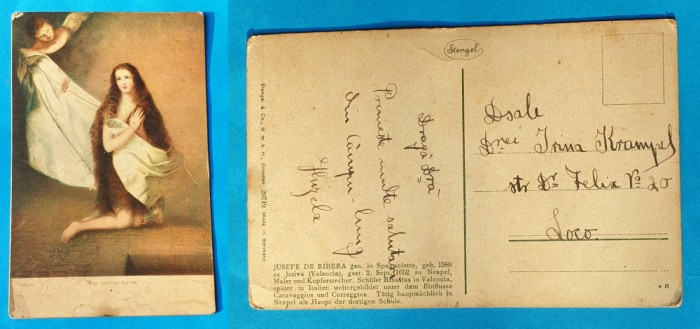 Stengel
Stengel & Co., G. m. b. H., Dresden
Made in Germany
Dragă Dră
Primește multe salutări
din Câmpu-lung
Dsale
Drei Irina Krampel
str Dr Felix No 20
Loco.
JUSEPE DE RIBERA gen. lo Spagnoletto, geb. 1588
zu Jativa (Valencia), gest. 2. Sept. 1652 zu Neapel,
Maler und Kupferstecher. Schüler Ribaltas in Valencia,
später in Italien weitergebildet unter dem Einflusse
Caravaggios und Correggios. Tätig hauptsächlich in
Neapel als Haupt der dortigen Schule.